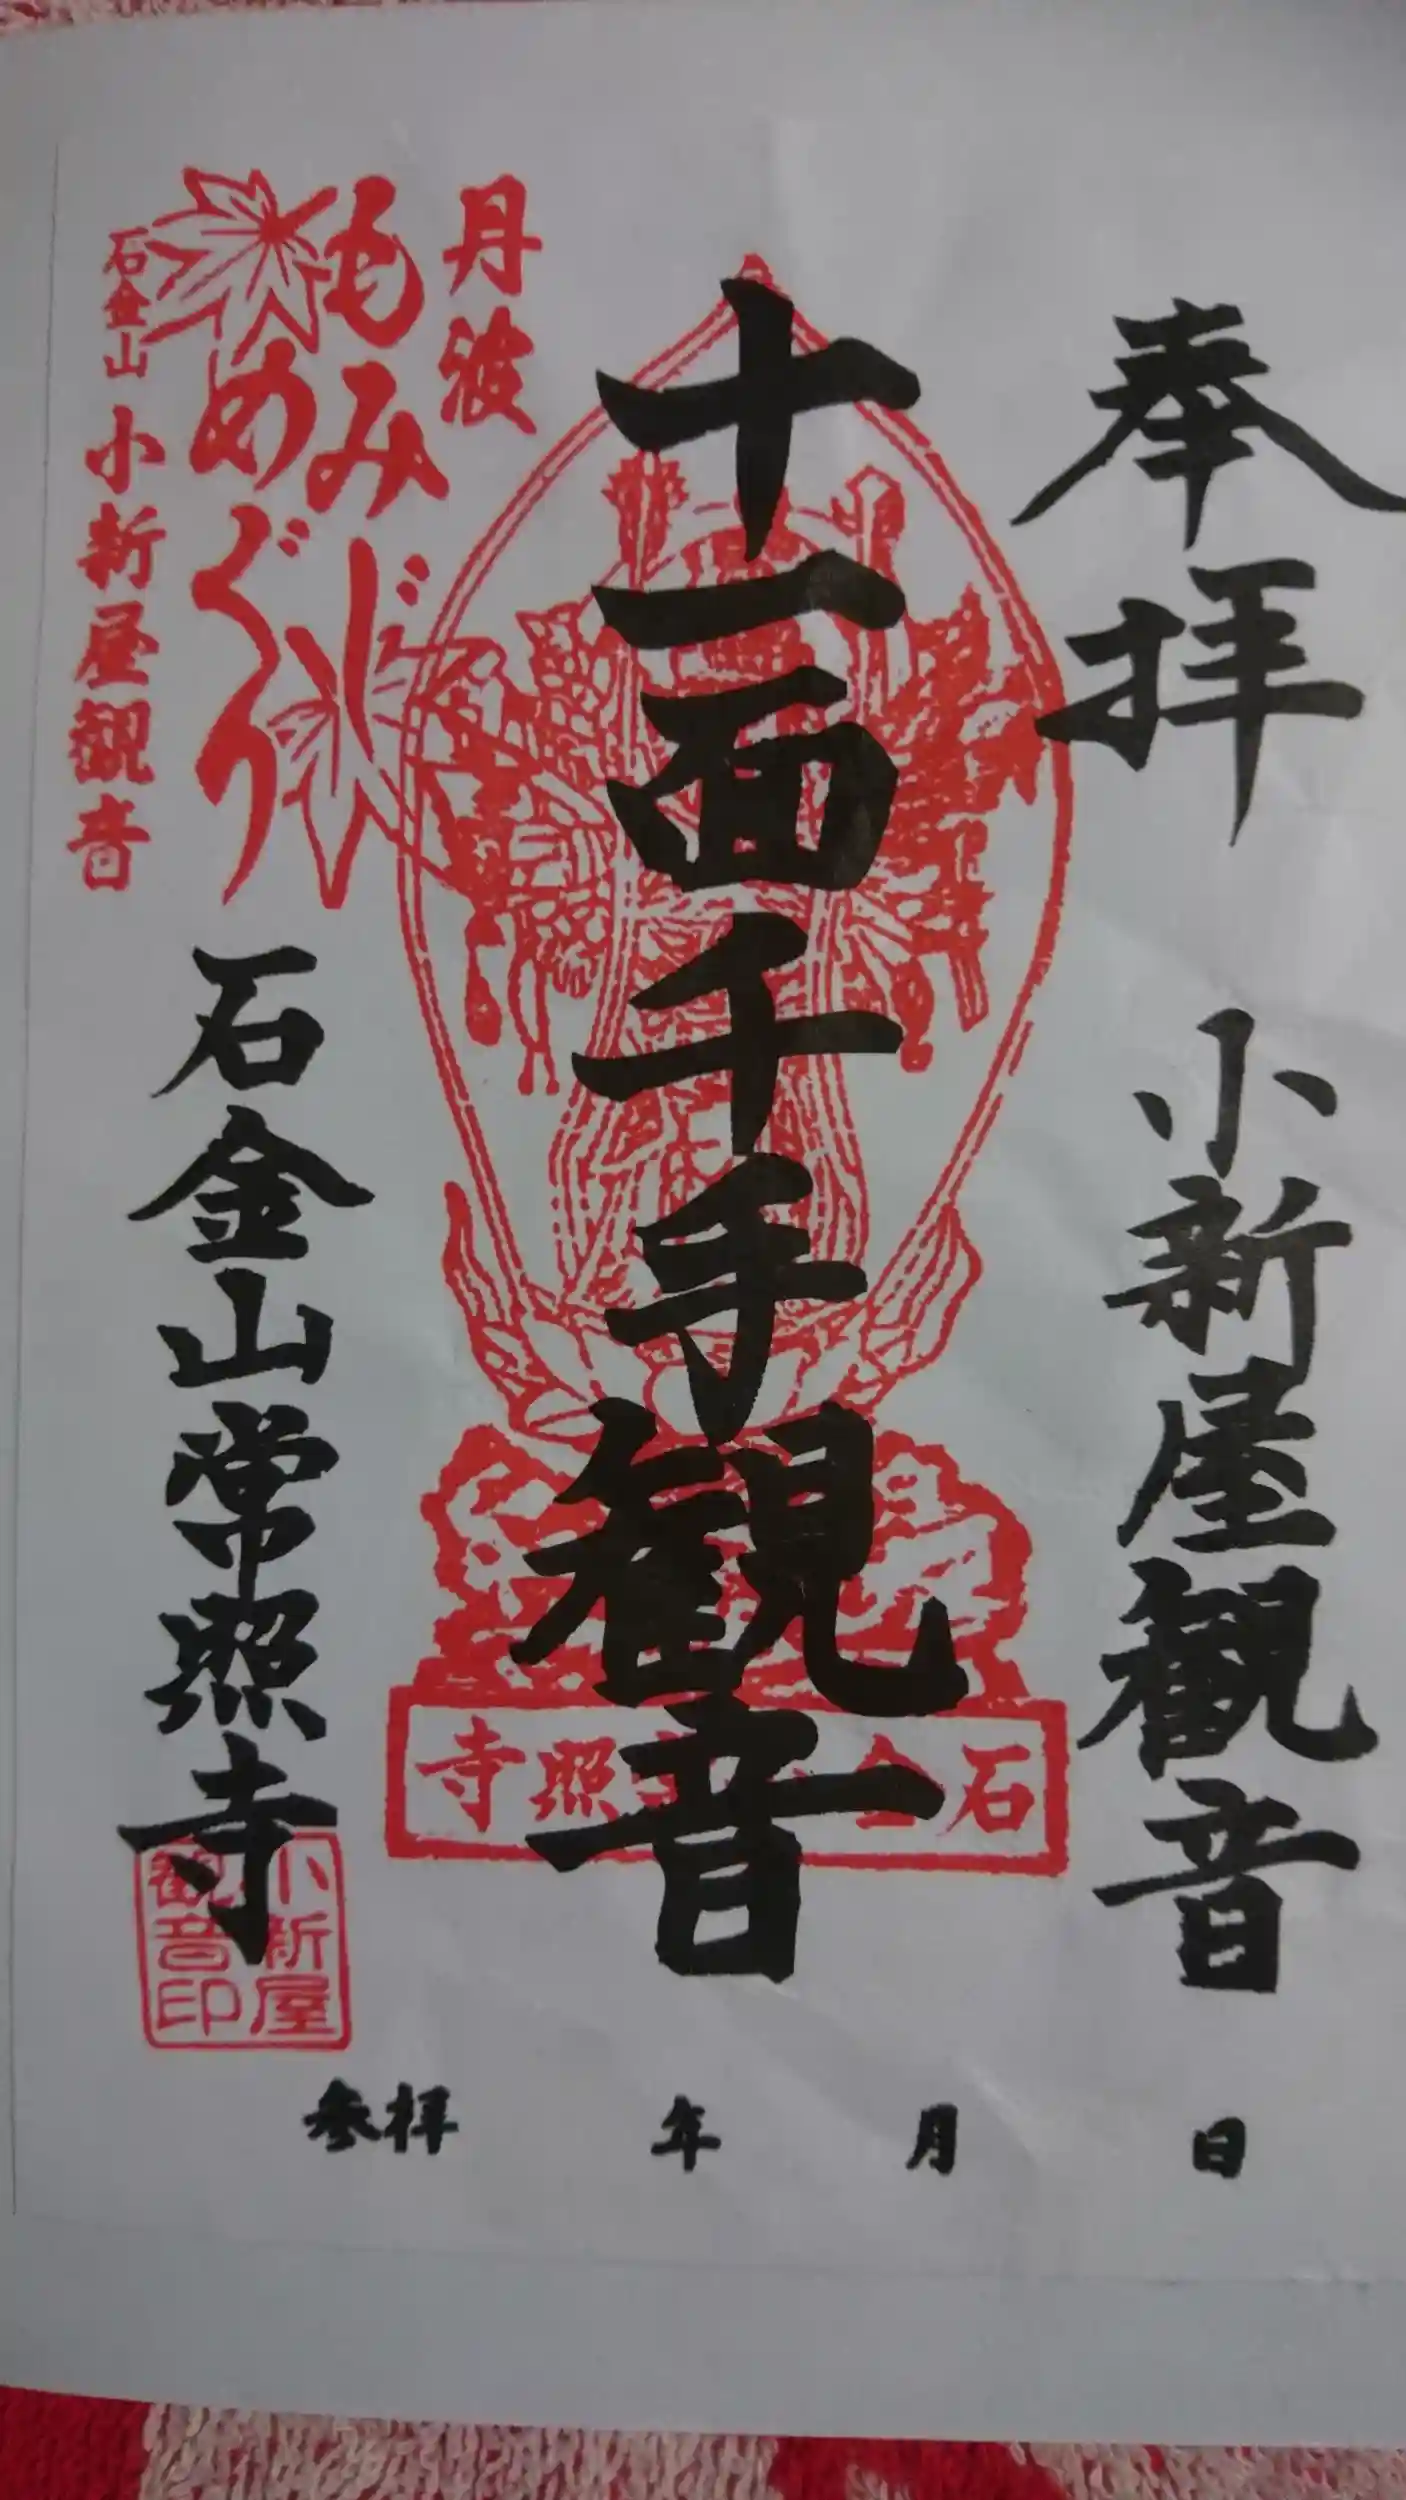 奉拝
小新屋観音
十一面千手観音
丹波
もみじ
めぐり
石金山 小新屋観音
石金山常照寺
石金
照寺
小新屋
観音印
参拝 年 月 日